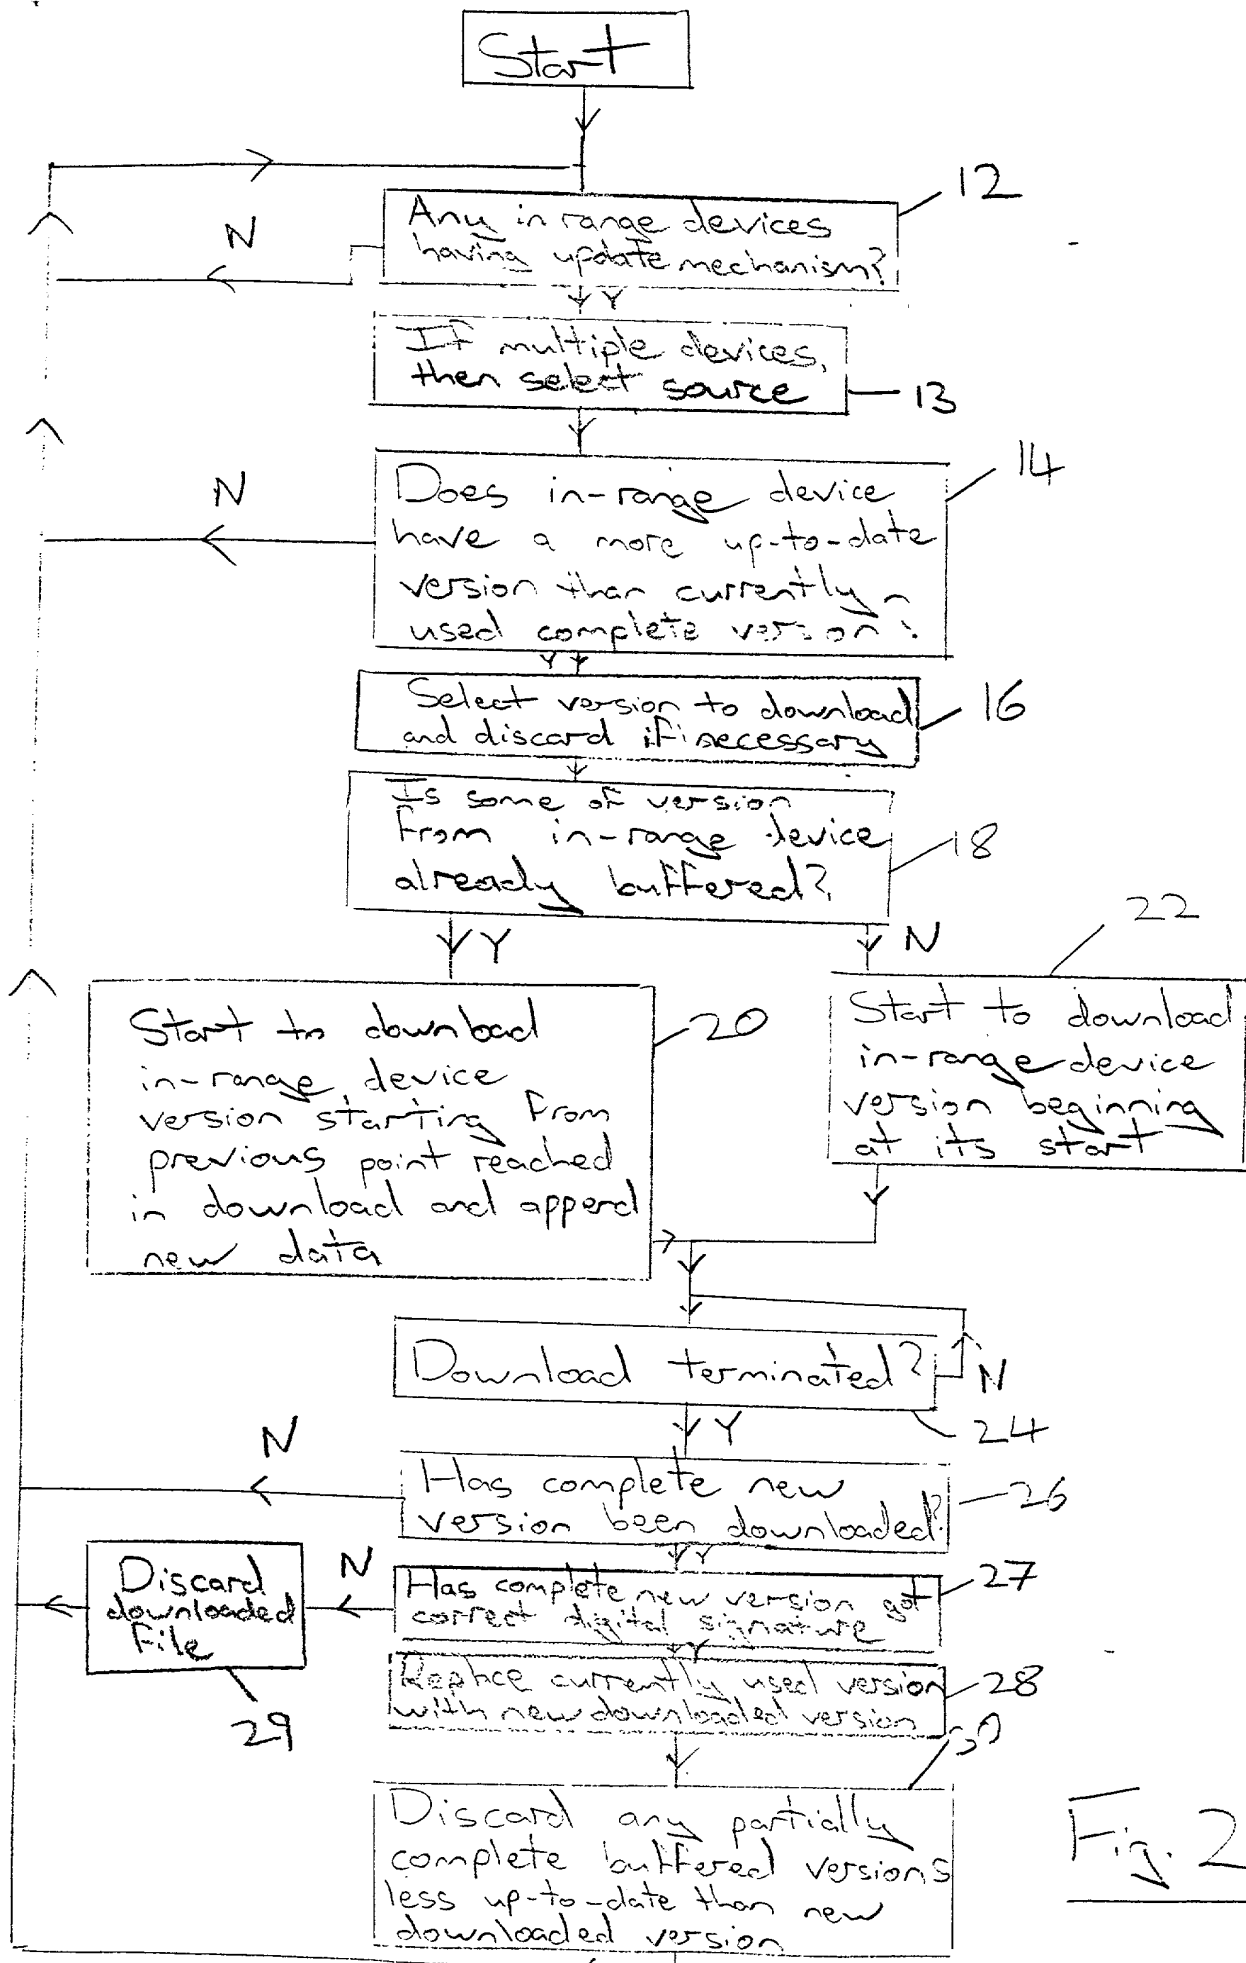 Start
12
Any in range devices
having update mechanism?
N
Y
If multiple devices,
then select source
13
14
N
Does in-range device
have a more up-to-date
version than currently
used complete version?
Y
Select version to download
and discard if necessary
16
Is some of version
from in-range device
already buffered?
18
Y
N
22
Start to download
in-range device
version starting from
previous point reached
in download and append
new data
20
Start to download
in-range device
version beginning
at its start
Download terminated?
N
24
Y
N
Has complete new
version been downloaded?
26
Y
N
Has complete new version got
correct digital signature
27
Y
Discard
downloaded
file
29
Replace currently used version
with new downloaded version
28
30
Discard any partially
complete buffered versions
less up-to-date than new
downloaded version
Fig. 2